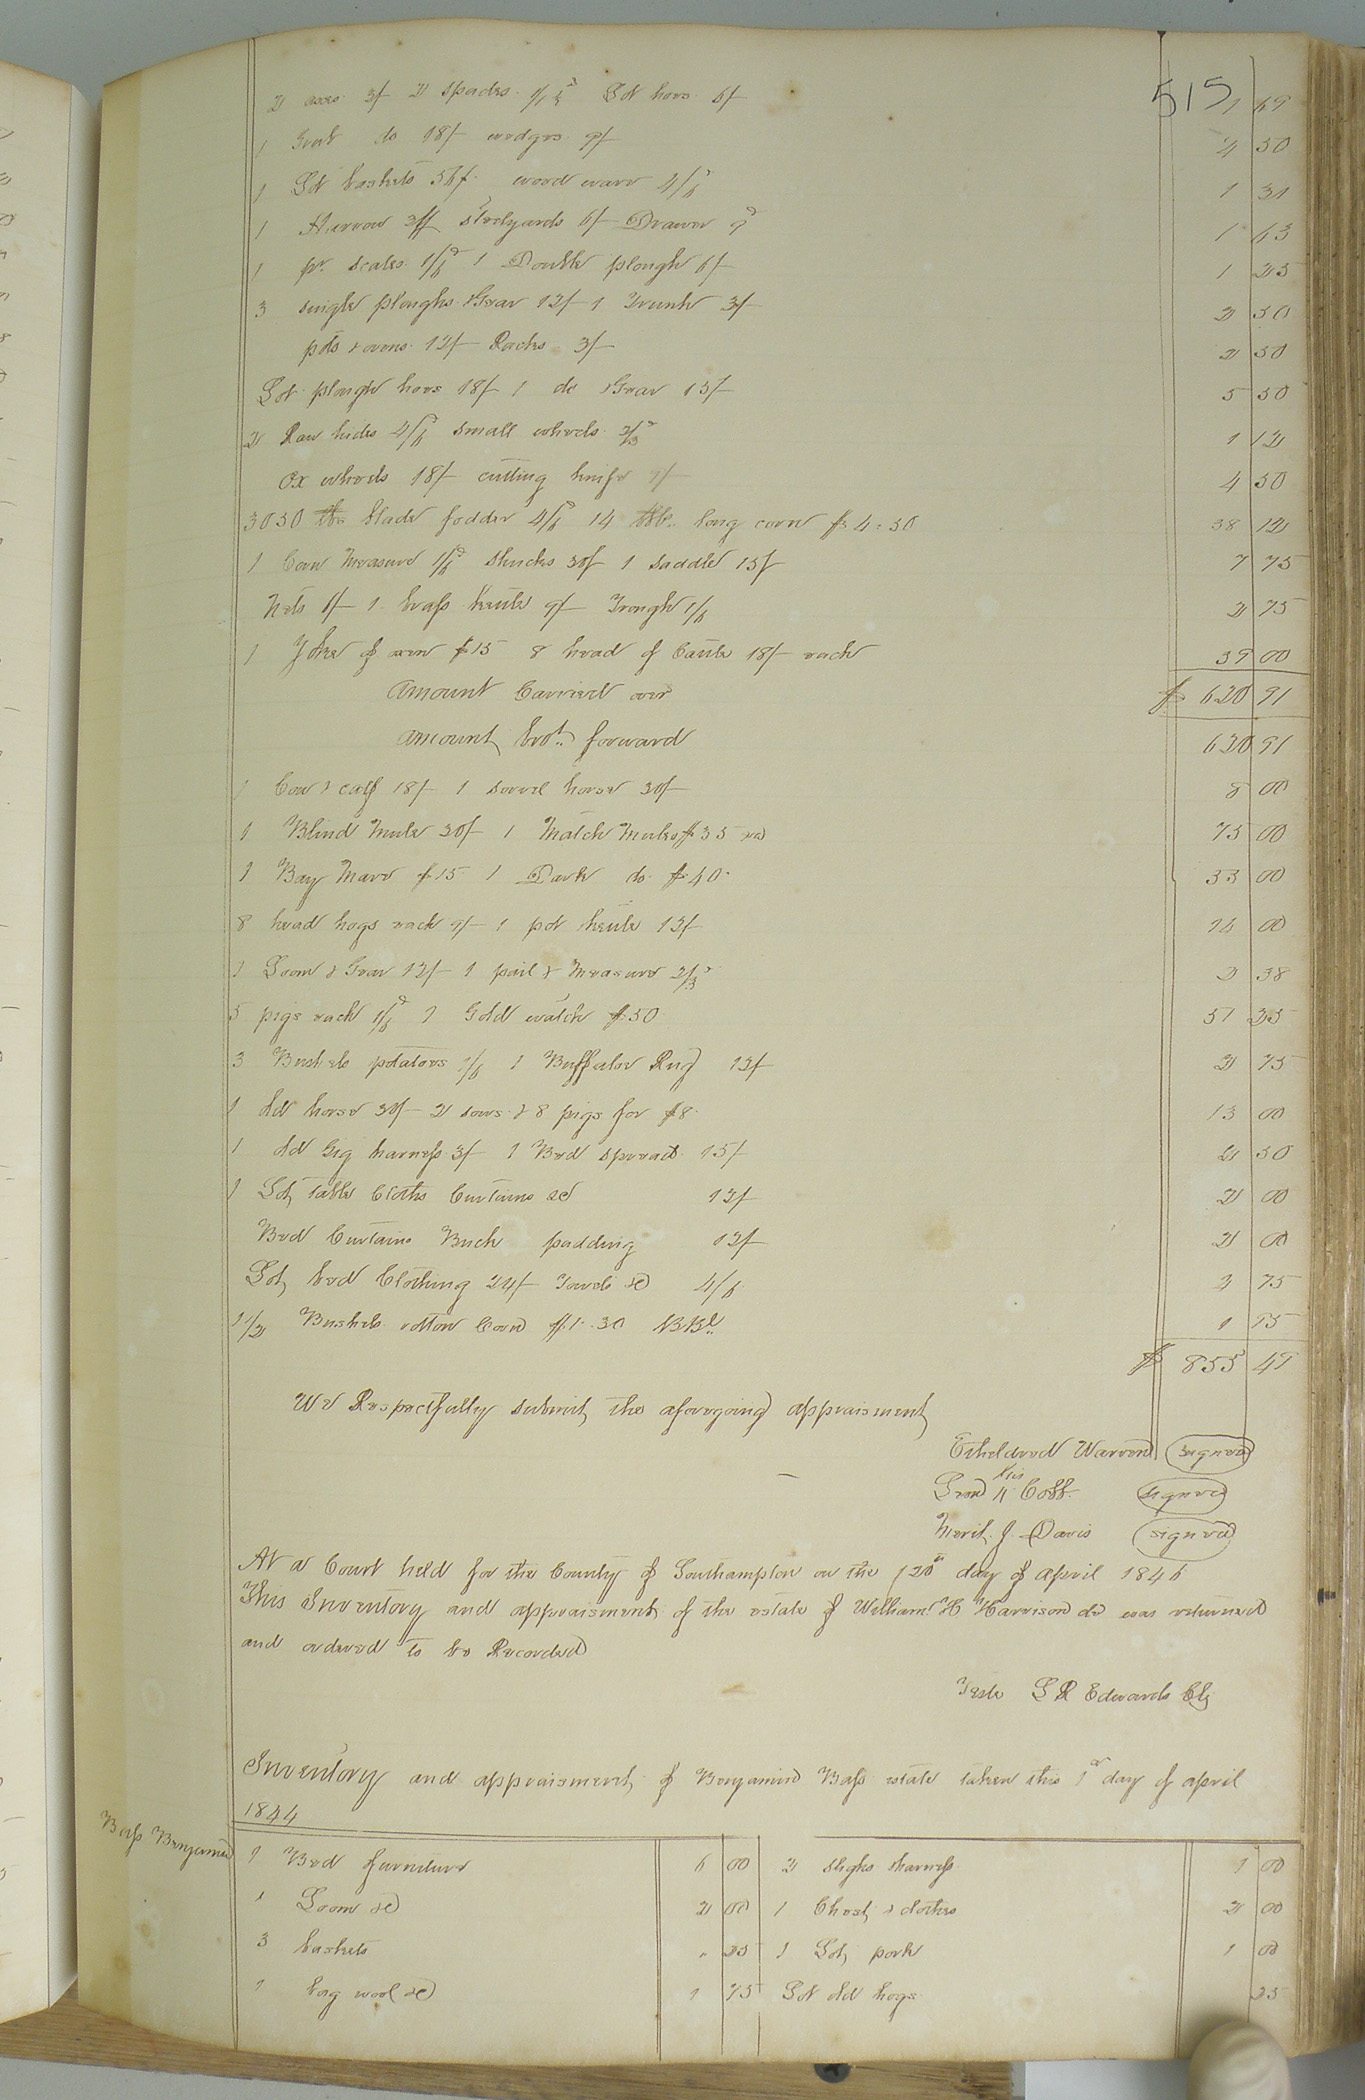 515
2 axes 3/ 2 spades 1/1½ Lot hoes 6/ 1 69
1 Grub do 18/ wedges 9/ 4 50
1 Lot baskets 5/ wood ware 4/6 1 31
1 Harrow 3/ steelyards 6/ Drawer 9d 1 63
1 pr scales 1/6 1 Double plough 6/ 1 25
3 single ploughs & Gear 12/ 1 Trunk 3/ 2 50
pots & ovens 12/ Racks 3/ 2 50
Lot plough hoes 18/ 1 do & Gear 15/ 5 50
2 Raw hides 4/6 small wheels 2/3 1 12
Ox wheels 18/ cutting knife 9/ 4 50
3050 lbs blade fodder 4/6 14 bbls long corn $4.50 38 12
1 Corn Measure 1/6 shucks 30/ 1 saddle 15/ 7 75
Nets 6/ 1 brass kettle 9/ Trough 1/6 2 75
1 Yoke of oxen $15 8 head of Cattle 18/ each 39 00
Amount Carried over $ 620 91
Amount brot. forward 620 91
1 Cow & calf 18/ 1 sorrel horse 30/ 8 00
1 Blind Mule 30/ 1 Match Mules $35 ea 75 00
1 Bay Mare $15 1 Dark do $40 55 00
8 head hogs each 9/ 1 pot kettle 12/ 14 00
1 Loom & Gear 12/ 1 pail & Measure 2/3 2 38
5 pigs each 1/6 1 Gold watch $50 51 25
3 Bushels potatoes 1/6 1 Buffalow Rug 12/ 2 75
1 Old horse 30/ 2 sows & 8 pigs for $8 13 00
1 Old Gig harness 3/ 1 Bed spread 15/ 2 50
1 Lot table Cloths Curtains &c 12/ 2 00
Bed Curtains Buck padding 12/ 2 00
Lot bed Clothing 24/ Towels &c 4/6 4 75
1 1/2 Bushels rotton Corn $1.30 BBl 1 95
$ 855 49
We Respectfully submit the aforegoing appraisment
Etheldred Warren signed
his
Cobb signed
Merit J. Davis signed
At a Court held for the County of Southampton on the 20th day of April 1846
This Inventory and appraisment of the estate of William H Harrison dd was returned
and ordered to be Recorded
Teste L R Edwards Clk
Inventory and appraisment of Benjamin Bass estate taken this 1st day of April
1844
Bass Benjamin
1 Bed & furniture 6 00 2 slighs & harness 1 00
1 Loom &c 2 00 1 Chest & clothes 2 00
3 baskets " 25 1 Lot pork 1 00
1 bag wool &c 1 75 Lot old hogs 25